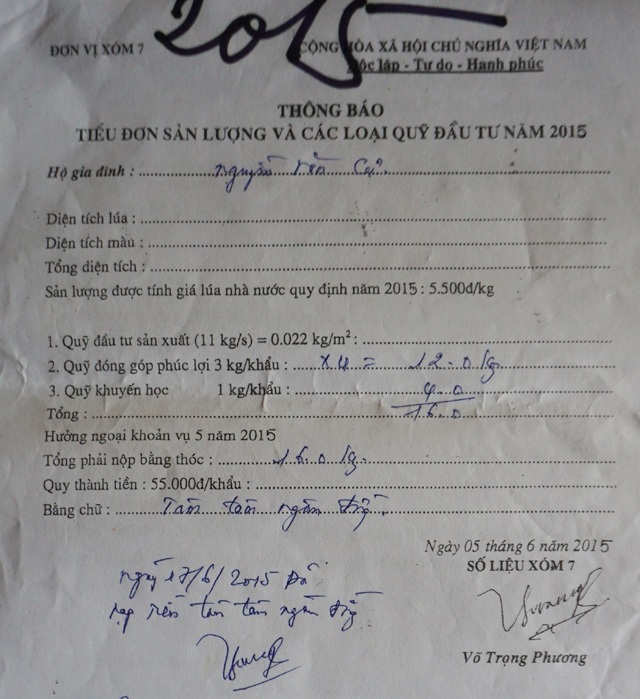 2015
ĐƠN VỊ XÓM 7 CỘNG HÒA XÃ HỘI CHỦ NGHĨA VIỆT NAM
Độc lập - Tự do - Hạnh phúc
THÔNG BÁO
TIỂU ĐƠN SẢN LƯỢNG VÀ CÁC LOẠI QUỸ ĐẦU TƯ NĂM 2015
Hộ gia đình : Nguyễn
Diện tích lúa :
Diện tích màu :
Tổng diện tích :
Sản lượng được tính giá lúa nhà nước quy định năm 2015 : 5.500đ/kg
1. Quỹ đầu tư sản xuất (11 kg/s) = 0.022 kg/m² :
2. Quỹ đóng góp phúc lợi 3 kg/khẩu : x 4 = 12.0 kg
3. Quỹ khuyến học 1 kg/khẩu : 4.0
Tổng : 16.0
Hưởng ngoại khoản vụ 5 năm 2015
Tổng phải nộp bằng thóc : 16.0 kg
Quy thành tiền : 55.000đ/khẩu :
Bằng chữ : Tám tám ngàn đồng
Ngày 05 tháng 6 năm 2015
SỐ LIỆU XÓM 7
ngày 17/6/2015 Đã
nạp tiền tám tám ngàn đồng
Võ Trọng Phương